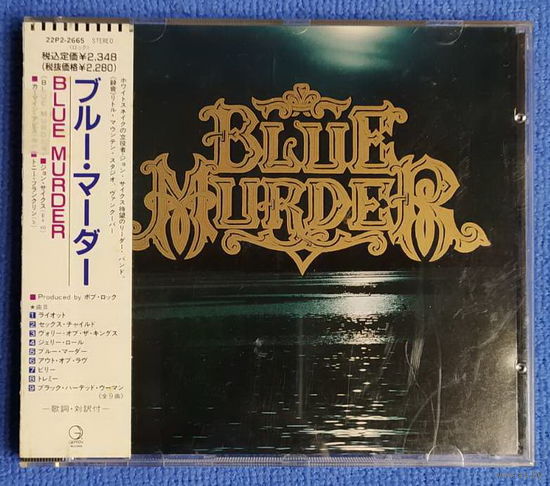 22P2-2665 STEREO
(ロック)
税込定価¥2,348
(税抜価格¥2,280)
ブルー・マーダー
BLUE MURDER
ホワイトスネイクの立役者・ジョン・サイクス待望のリーダー・バンド。
(録音)リトル・マウンテン・スタジオ、ヴァンクーバー
BLUE MURDER
■ジョン・サイクス
■トニー・フランクリン
■Produced by ボブ・ロック
★曲目
1 ライオット
2 セックス・チャイルド
3 ヴァリー・オブ・ザ・キングス
4 ジェリー・ロール
5 ブルー・マーダー
6 アウト・オブ・ラヴ
7 ビリー
8 トレミー
9 ブラック・ハーテッド・ウーマン
(全9曲)
—歌詞・対訳付—
G
GEFFEN
BLUE
MURDER